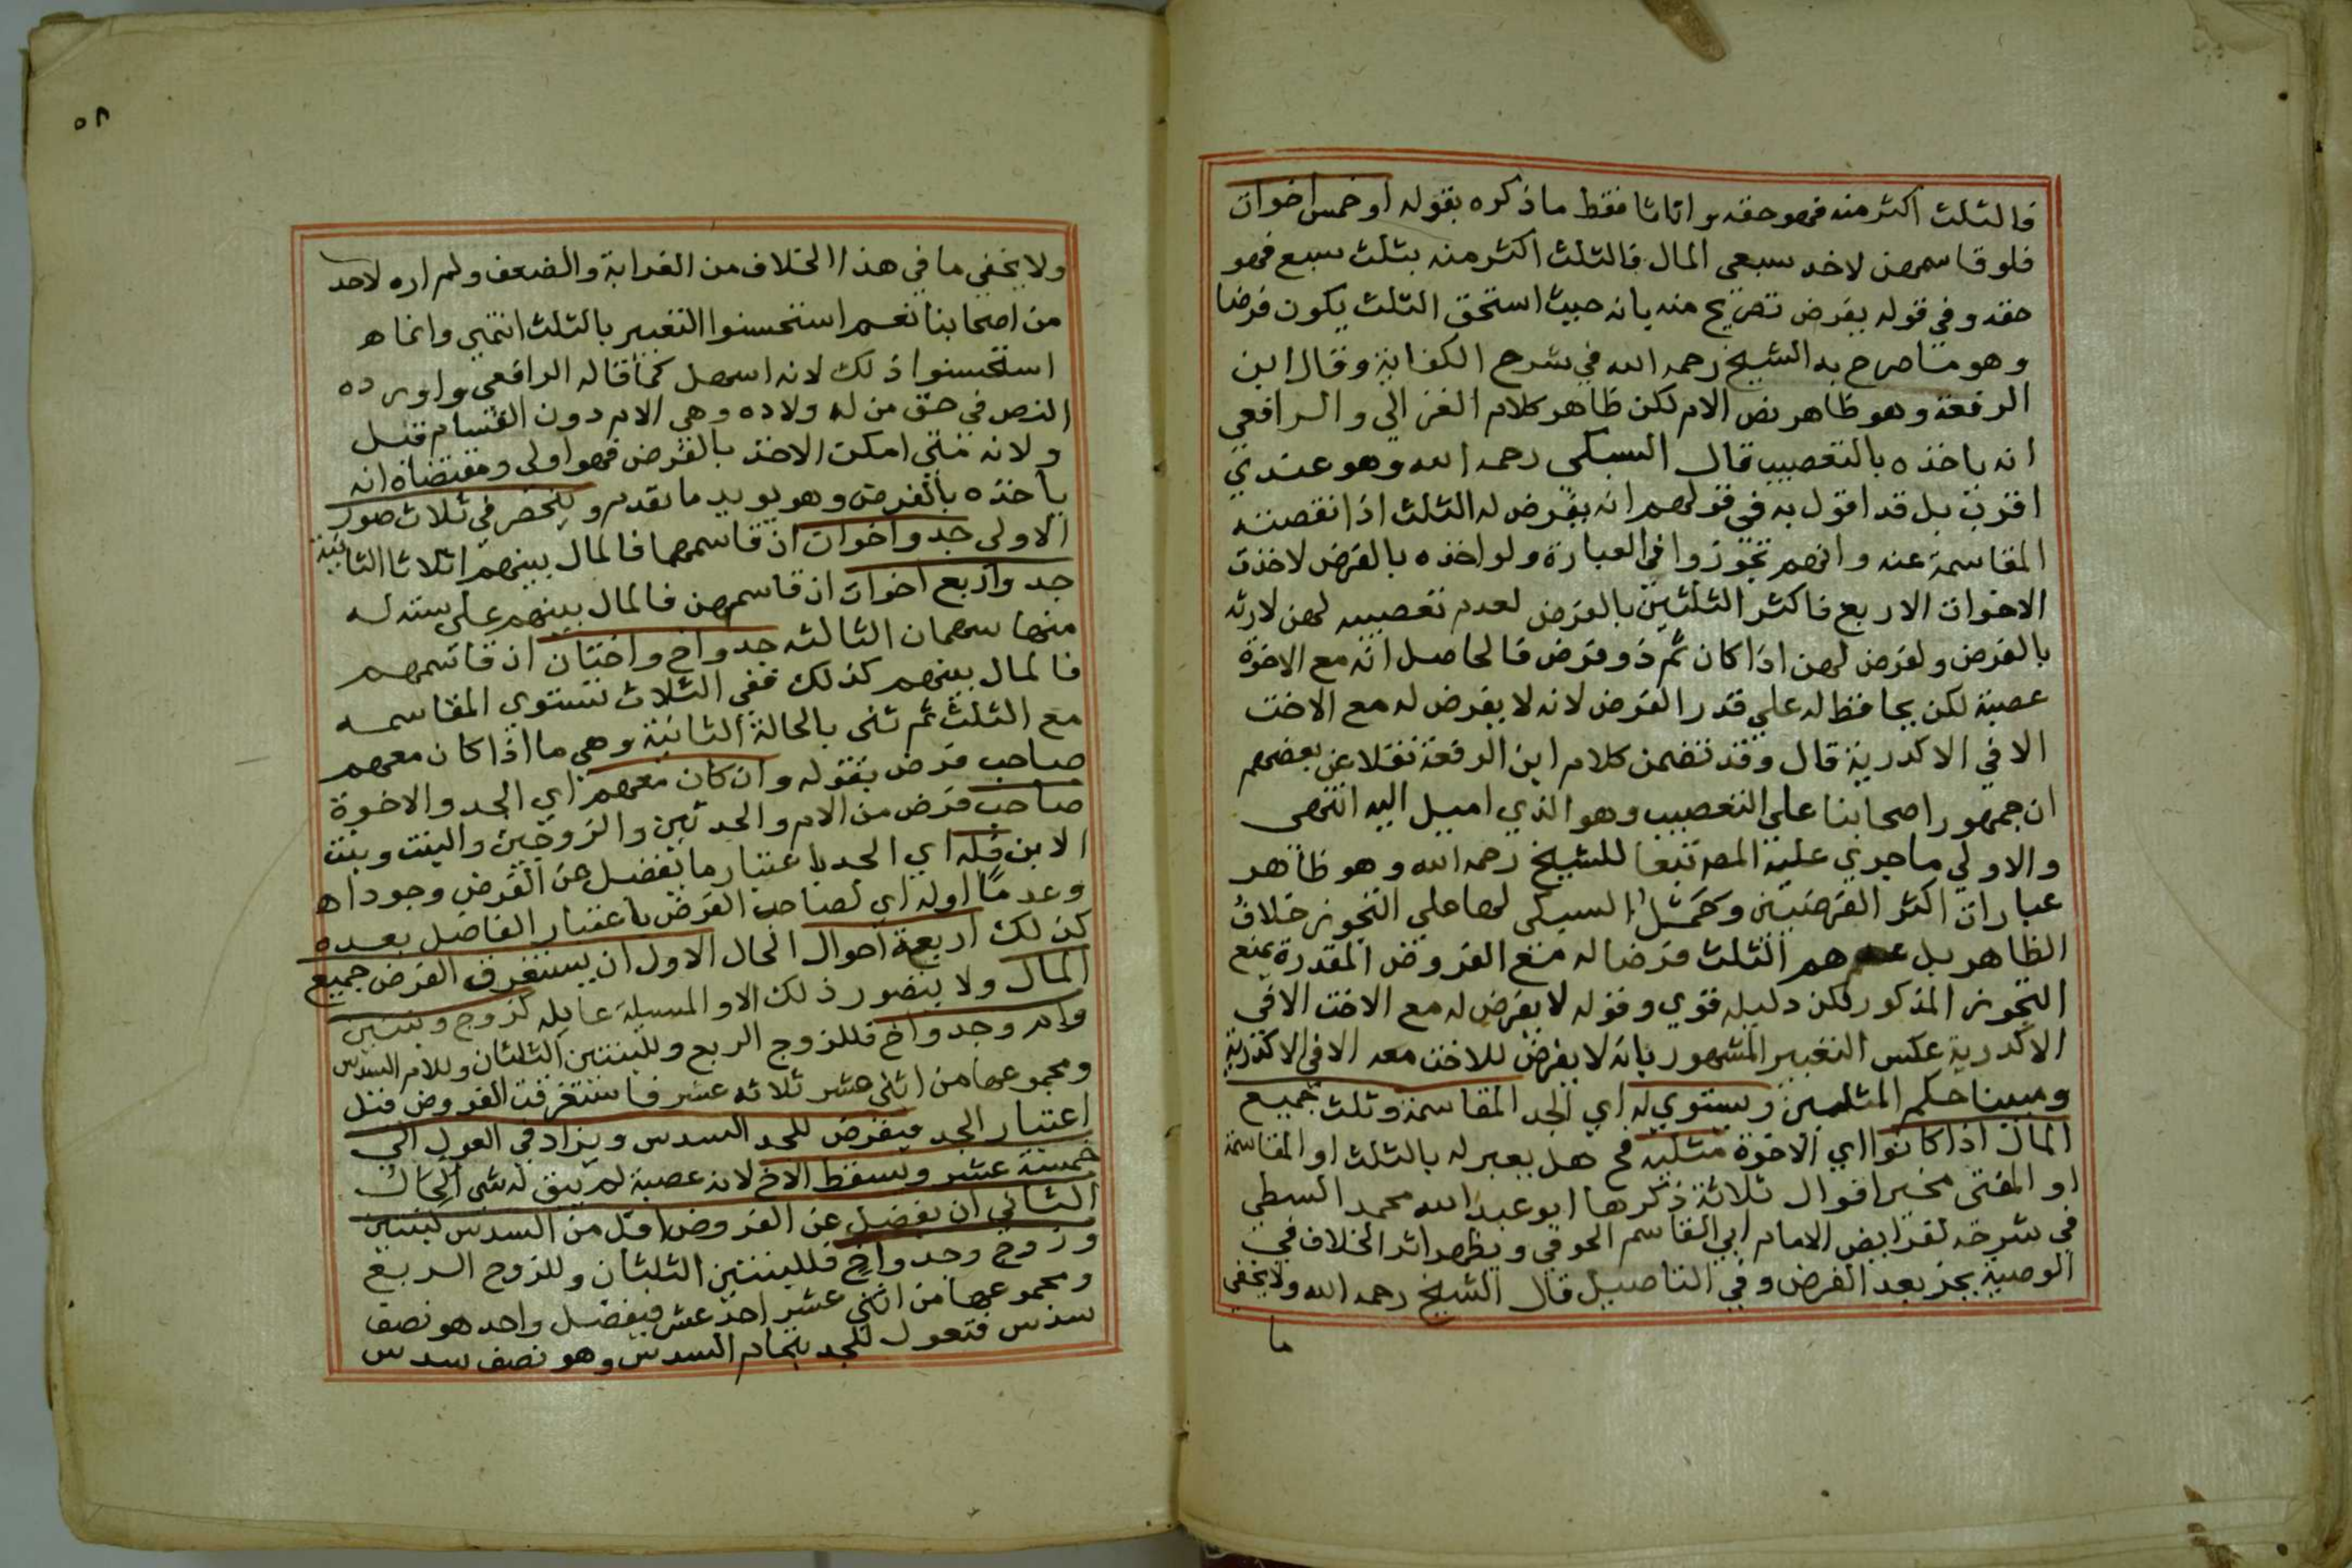 فالثلث اكثر منه فهو حقه واناثا فقط ما ذكره بقوله او خمس اخوات
فلو قاسمهن لاخد سبعى المال فالثلث اكثر منه بثلث سبع فهو
حقه وفي قوله يفرض تصريح منه بانه حيث استحق الثلث يكون فرضا
وهو ما صرح به الشيخ رحمه الله في شرح الكفاية وقال ابن
الرفعة وهو ظاهر نص الام لكن ظاهر كلام الغزالي والرافعي
انه ياخذه بالتعصيب قال السبكي رحمه الله وهو عندي
اقرب بل قد اقول به في قولهم انه يفرض له الثلث اذا نقصته
المقاسمة عنه وانهم تجوزوا في العبارة ولو اخذه بالفرض لاخذت
الاخوات الاربع فاكثر الثلثين بالفرض لعدم تعصيبه لهن لارثه
بالفرض ولفرض لهن اذا كان ثم ذو فرض فالحاصل انه مع الاخوة
عصبة لكن يحافظ له علي قدر الفرض لانه لا يفرض له مع الاخت
الا في الاكدرية قال وقد تضمن كلام ابن الرفعة نقلا عن بعضهم
ان جمهور اصحابنا علي التعصيب وهو الذي اميل اليه انتهى
والاولي ما جري عليه المص تبعا للشيخ رحمه الله وهو ظاهر
عبارات اكثر الفرضيين وحمل السبكى لها علي التجوز خلاف
الظاهر بل عدهم الثلث فرضا له مع الفروض المقدرة يمنع
التجوز المذكور لكن دليله قوي وقوله لا يفرض له مع الاخت الا في
الاكدرية عكس التعبير المشهور بانه لا يفرض للاخت معه الا في الاكدرية
ومبينا حكم المثلين ويستوي له اي الجد المقاسمة وثلث جميع
المال اذا كانوا اي الاخوة مثليه فح هل يعبر له بالثلث او المقاسمة
او المفتى مخير اقوال ثلاثة ذكرها ابو عبد الله محمد السطي
في شرحه لفرايض الامام ابي القاسم الحوفي ويظهر اثر الخلاف في
الوصية بجز بعد الفرض وفي التاصيل قال الشيخ رحمه الله ولا يخفي
ما
٥٨
ولا يخفي ما في هذا الخلاف من الغرابة والضعف ولم اره لاحد
من اصحابنا نعم استحسنوا التعبير بالثلث انتهي وانما هـ
استحسنوا ذلك لانه اسهل كما قاله الرافعي واورده
النص في حق من له ولاده وهي الام دون القسام قبل
ولانه متي امكن الاخذ بالفرض فهو اولى ومقتضاه انه
ياخذه بالفرض وهو يويد ما تقدم وينحصر في ثلاث صور
الاولى جد واخوات ان قاسمها فالمال بينهم اثلاثا الثانية
جد واربع اخوات ان قاسمهن فالمال بينهم علي سته له
منها سهمان الثالثه جد واخ واختان ان قاسمهم
فالمال بينهم كذلك ففي الثلاث تستوي المقاسمه
مع الثلث ثم ثنى بالحالة الثانية وهي ما اذا كان معهم
صاحب فرض بقوله وان كان معهم اي الجد والاخوة
صاحب فرض من الام والجدتين والزوجين والبنت وبنت
الابن فله اي الجد باعتبار ما يفضل عن الفرض وجودا هـ
وعدما او له اي لصاحب الفرض باعتبار الفاضل بعده
كذلك اربعة احوال الحال الاول ان يستغرق الفرض جميع
المال ولا يتصور ذلك الا والمسيلة عايله كزوج وبنتين
وام وجد واخ فللزوج الربع وللبنتين الثلثان وللام السدس
ومجموعها من اثني عشر ثلاثه عشر فاستغرقت الفروض قبل
اعتبار الجد فيفرض للجد السدس ويزاد في العول الي
خمسة عشر ويسقط الاخ لانه عصبة لم يبق له شي الحال
الثاني ان يفضل عن الفروض اقل من السدس كبنتين
وزوج وجد واخ فللبنتين الثلثان وللزوج الربع
ومجموعها من اثني عشر احد عشر فيفضل واحد هو نصف
سدس فتعول للجد بتمام السدس وهو نصف سدس